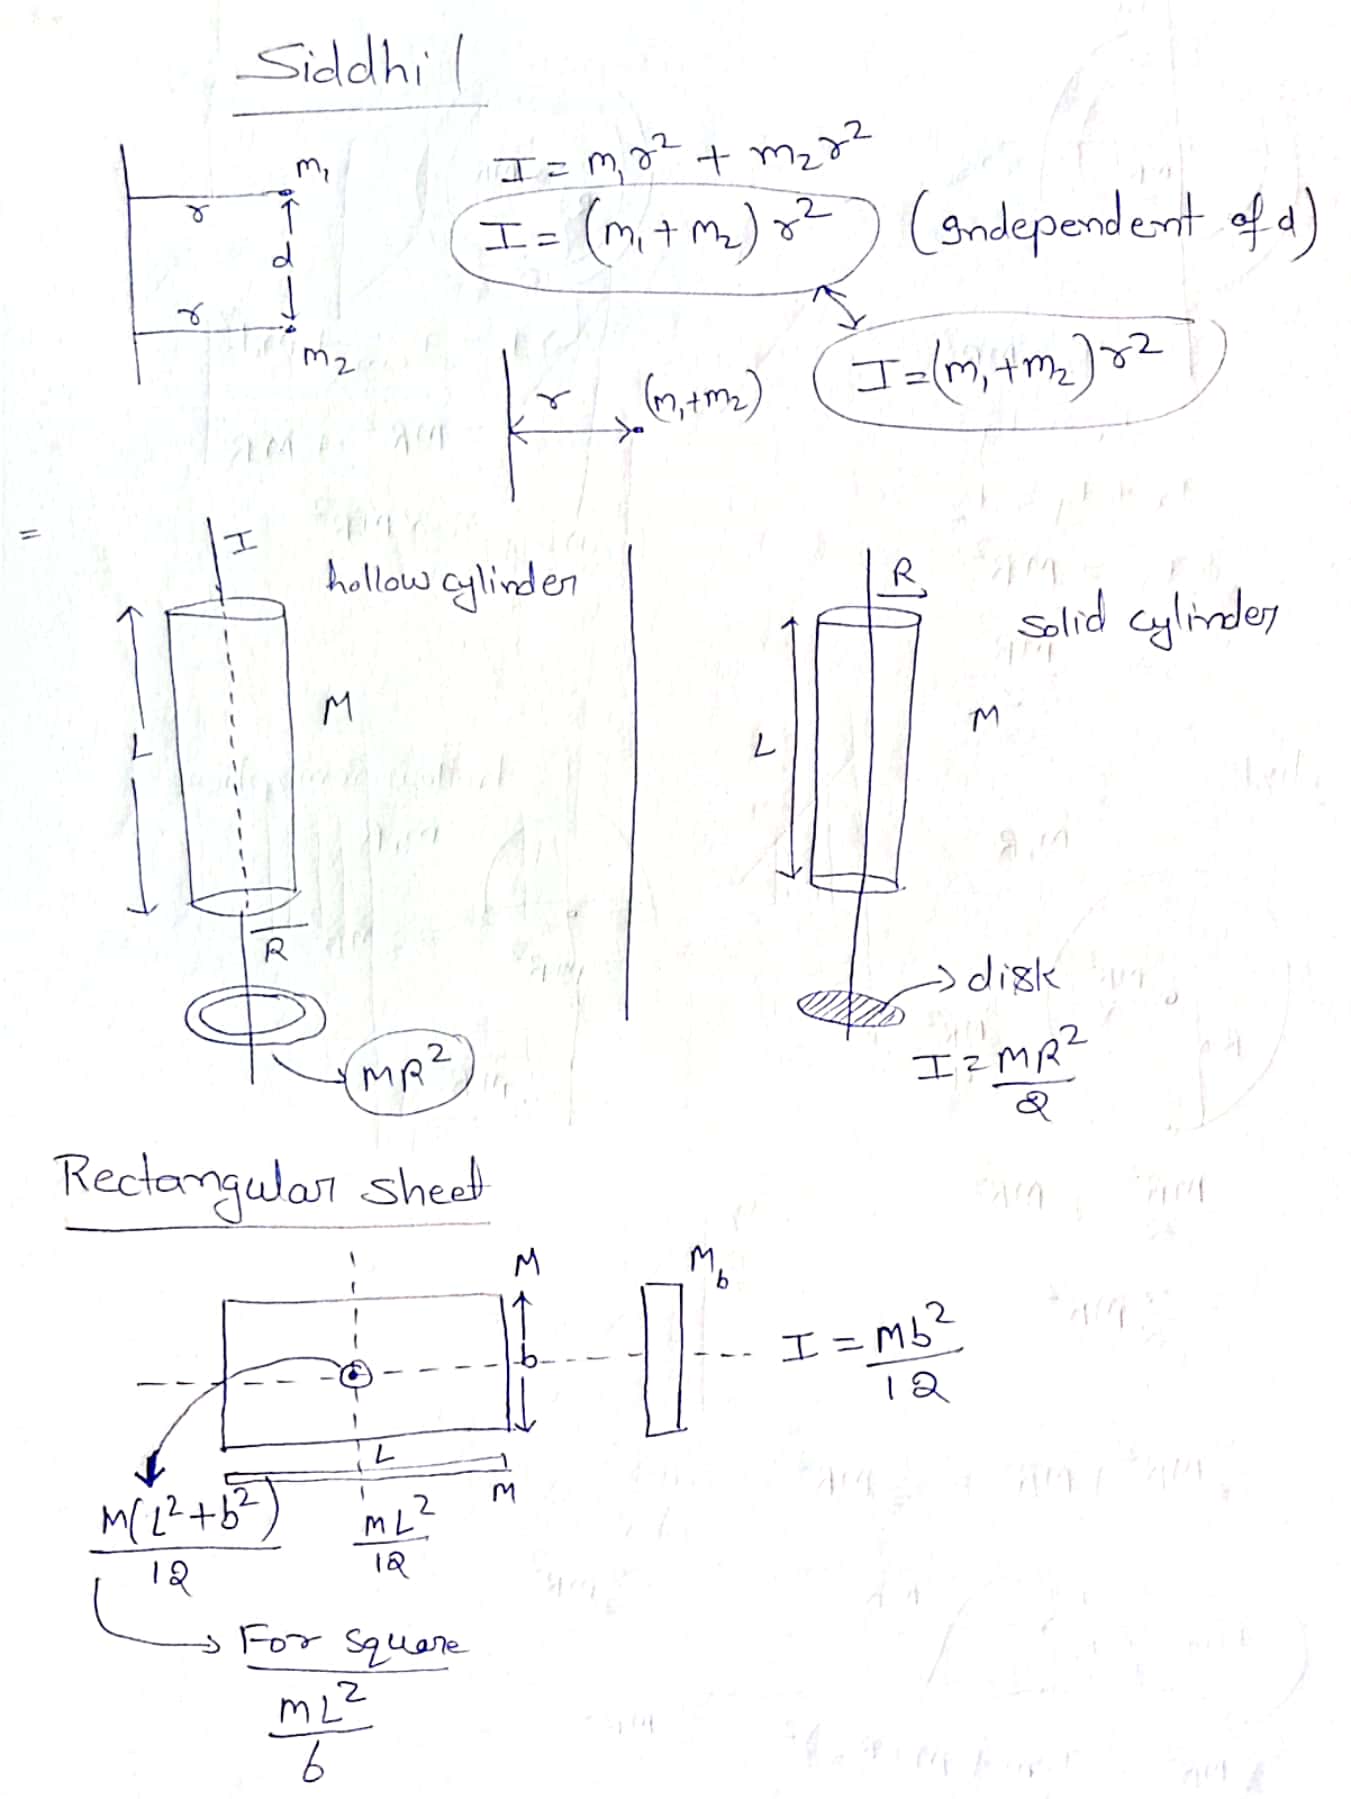 Siddhi 1
m₁
r
d
r
m₂
I = m₁r² + m₂r²
I = (m₁ + m₂) r² (Independent of d)
I = (m₁ + m₂) r²
r (m₁ + m₂)
=
I
hollow cylinder
M
L
R
MR²
R
solid cylinder
M
L
→ disk
I = MR²
2
Rectangular sheet
M
b
M b
I = Mb²
12
L
M
M(L² + b²)
12
ML²
12
→ For square
ML²
6